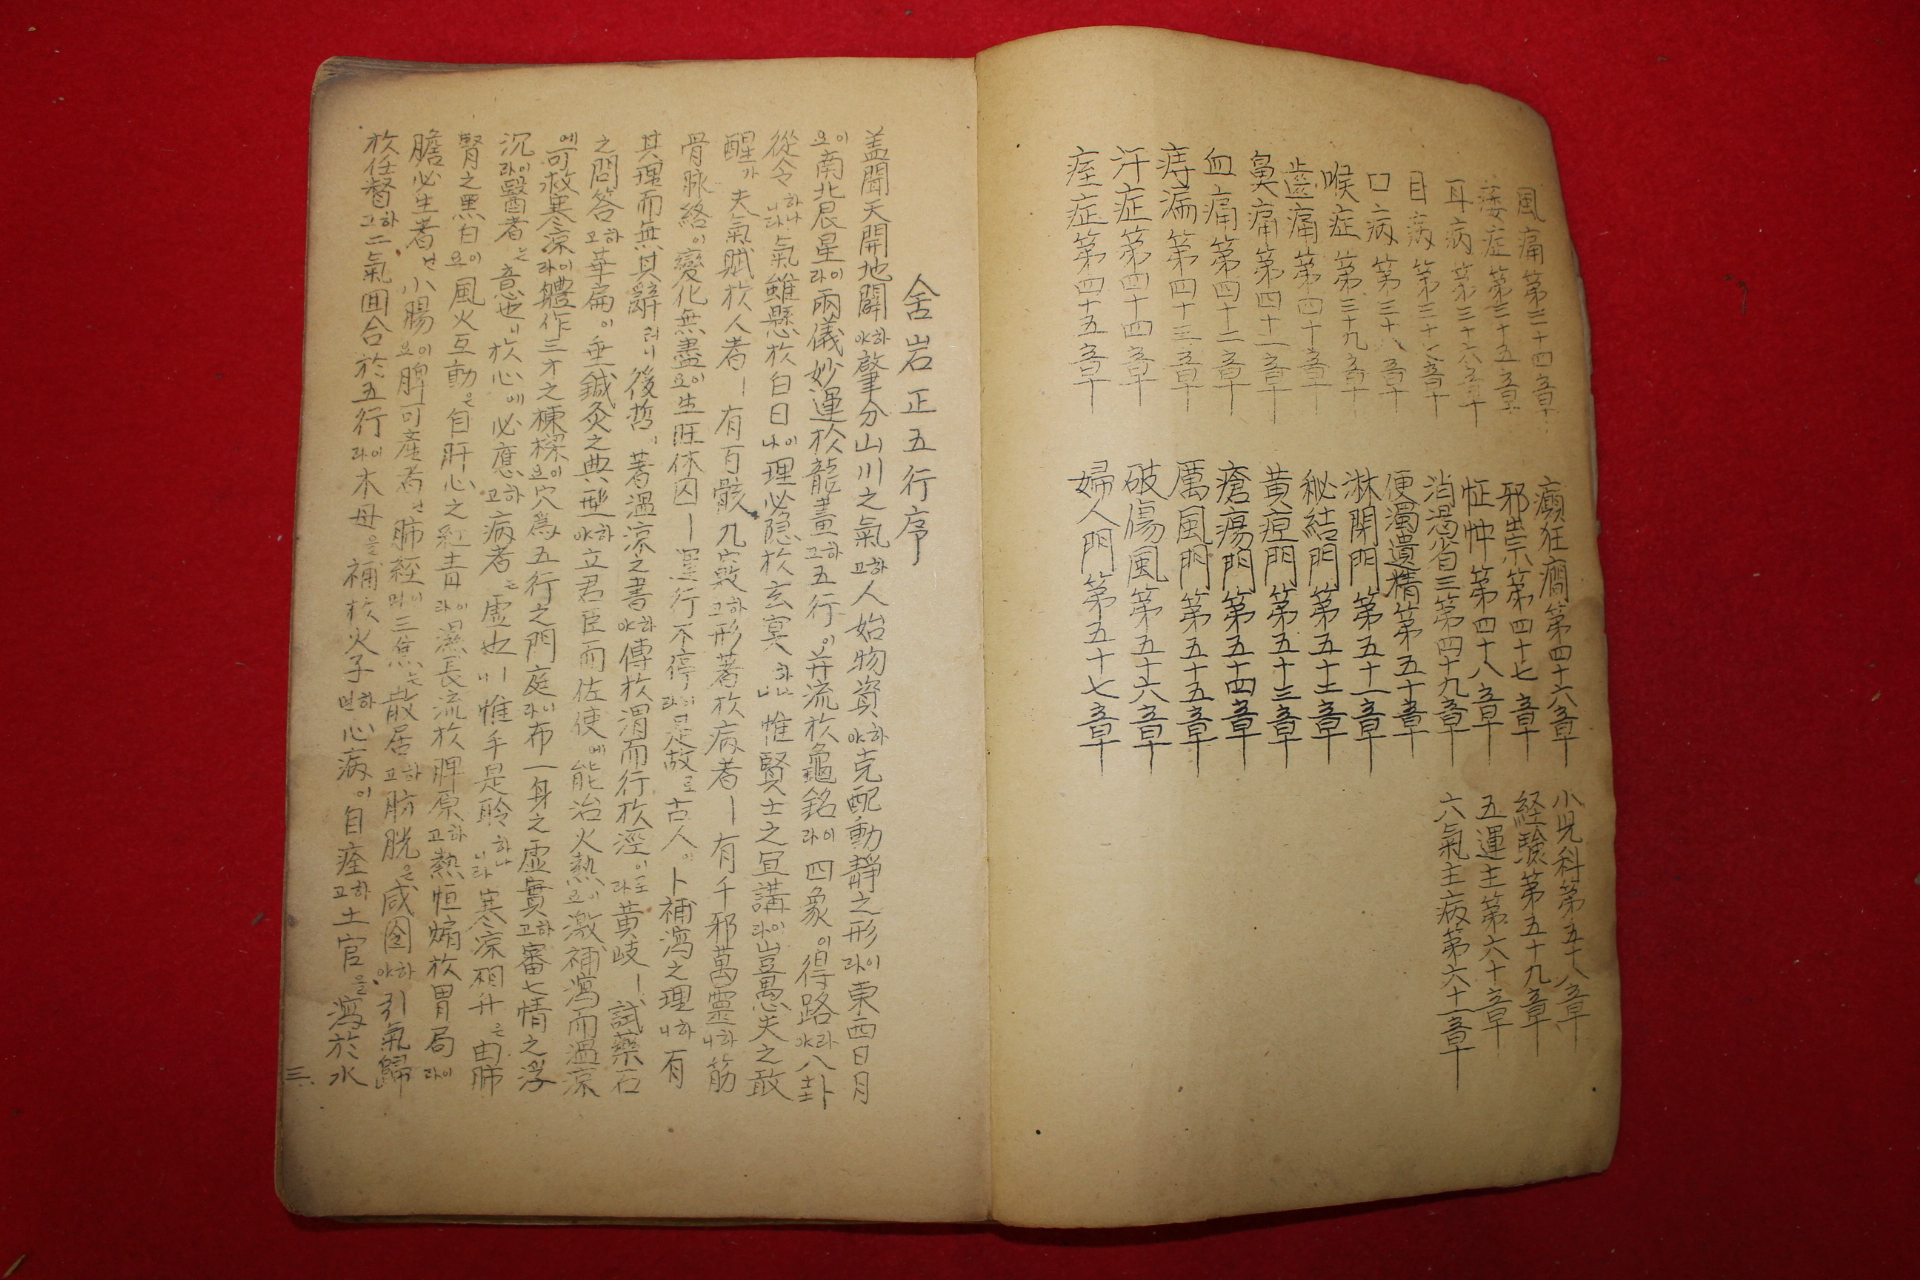 風痛第三十四章
痿症第三十五章
耳病第三十六章
目病第三十七章
口病第三十八章
喉症第三十九章
齒痛第四十章
鼻痛第四十一章
血痛第四十二章
痔漏第四十三章
汗症第四十四章
痓症第四十五章
癲狂癎第四十六章
邪祟第四十七章
怔忡第四十八章
消渴省三第四十九章
便濁遺精第五十章
淋閉門第五十一章
秘結門第五十二章
黃疸門第五十三章
瘡瘍門第五十四章
厲風門第五十五章
破傷風第五十六章
婦人門第五十七章
小児科第五十八章
経驗第五十九章
五運主第六十章
六氣主病第六十一章
舍岩正五行序
盖聞天開地闢하야肇分山川之氣하고人始物資하야克配動靜之形이라東西日月
이요南北辰星이라兩儀妙運於龍畫하고五行이并流於龜銘이라四象이得路라야八卦
從令하나니라氣雖懸於白日이나理必隐於玄冥하나니惟賢士之宜講이라豈愚夫之敢
醒가夫氣賦於人者ㅣ有百骸九竅하고形著於病者ㅣ有千邪萬靈하니筋
骨脉絡이變化無盡이요生旺休囚ㅣ運行不停이라是故로古人이卜補瀉之理하니有
其理而無其辭러니後哲이著溫凉之書하야傳於渭而行於涇이라도黃岐ㅣ試藥石
之問答하고華扁이垂鍼灸之典型하야立君臣而佐使에能治火熱이요激補瀉而溫凉
에可救寒凉이라體作三才之棟樑이요穴爲五行之門庭이라布一身之虛實하고審七情之浮
沉이라醫者는意也니於心에必應하고病者는虛也ㅣ니惟手是聆하나니라寒凉相升은由肺
腎之黑白이요風火互動은自肝心之紅青이라濕長流於脾原하고熱恒煽於胃局이라
膽必生者난小腸이요脾可產者난肺經이며三焦는散居하고肪胱은咸囹하야引氣歸
於任督하고二氣囬合於五行이라木母을補於火子하면心病이自痊하고土官을瀉於水
三.